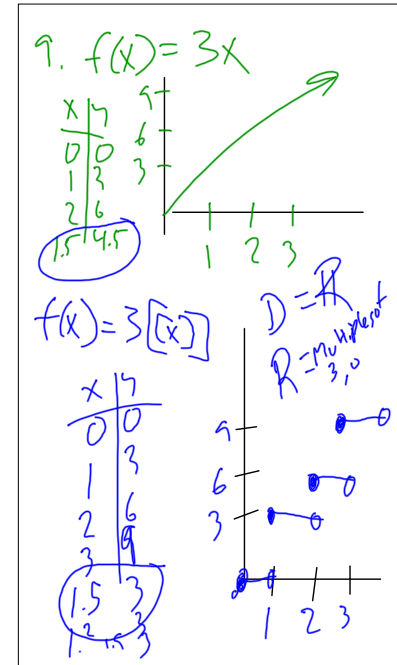 9. f(x) = 3x
x y
0 0
1 3
2 6
1.5 4.5
9
6
3
1 2 3
f(x) = 3[[x]]
D = ℝ
R = Multiples of
3, 0
x y
0 0
1 3
2 6
3 9
1.5 3
9
6
3
1 2 3